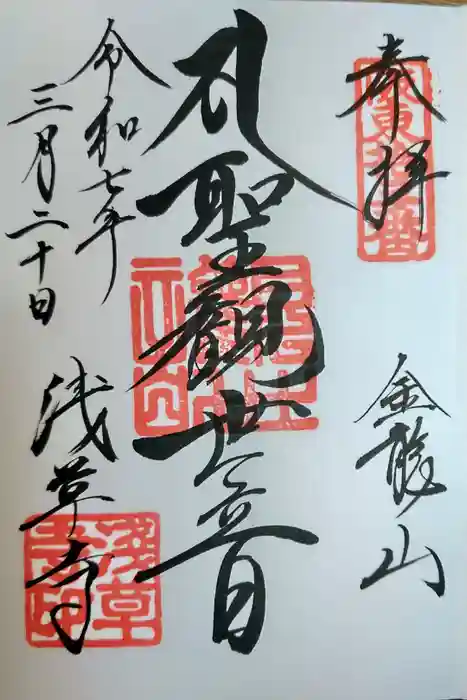 奉拝
金龍山
聖観世音
令和七年
三月二十日
浅草寺
淺草
寺印